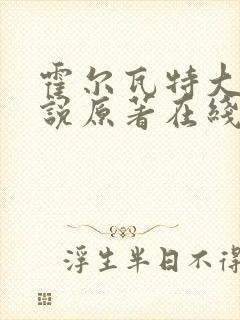 霍尔瓦特大
說原著在綫
浮生半日不得